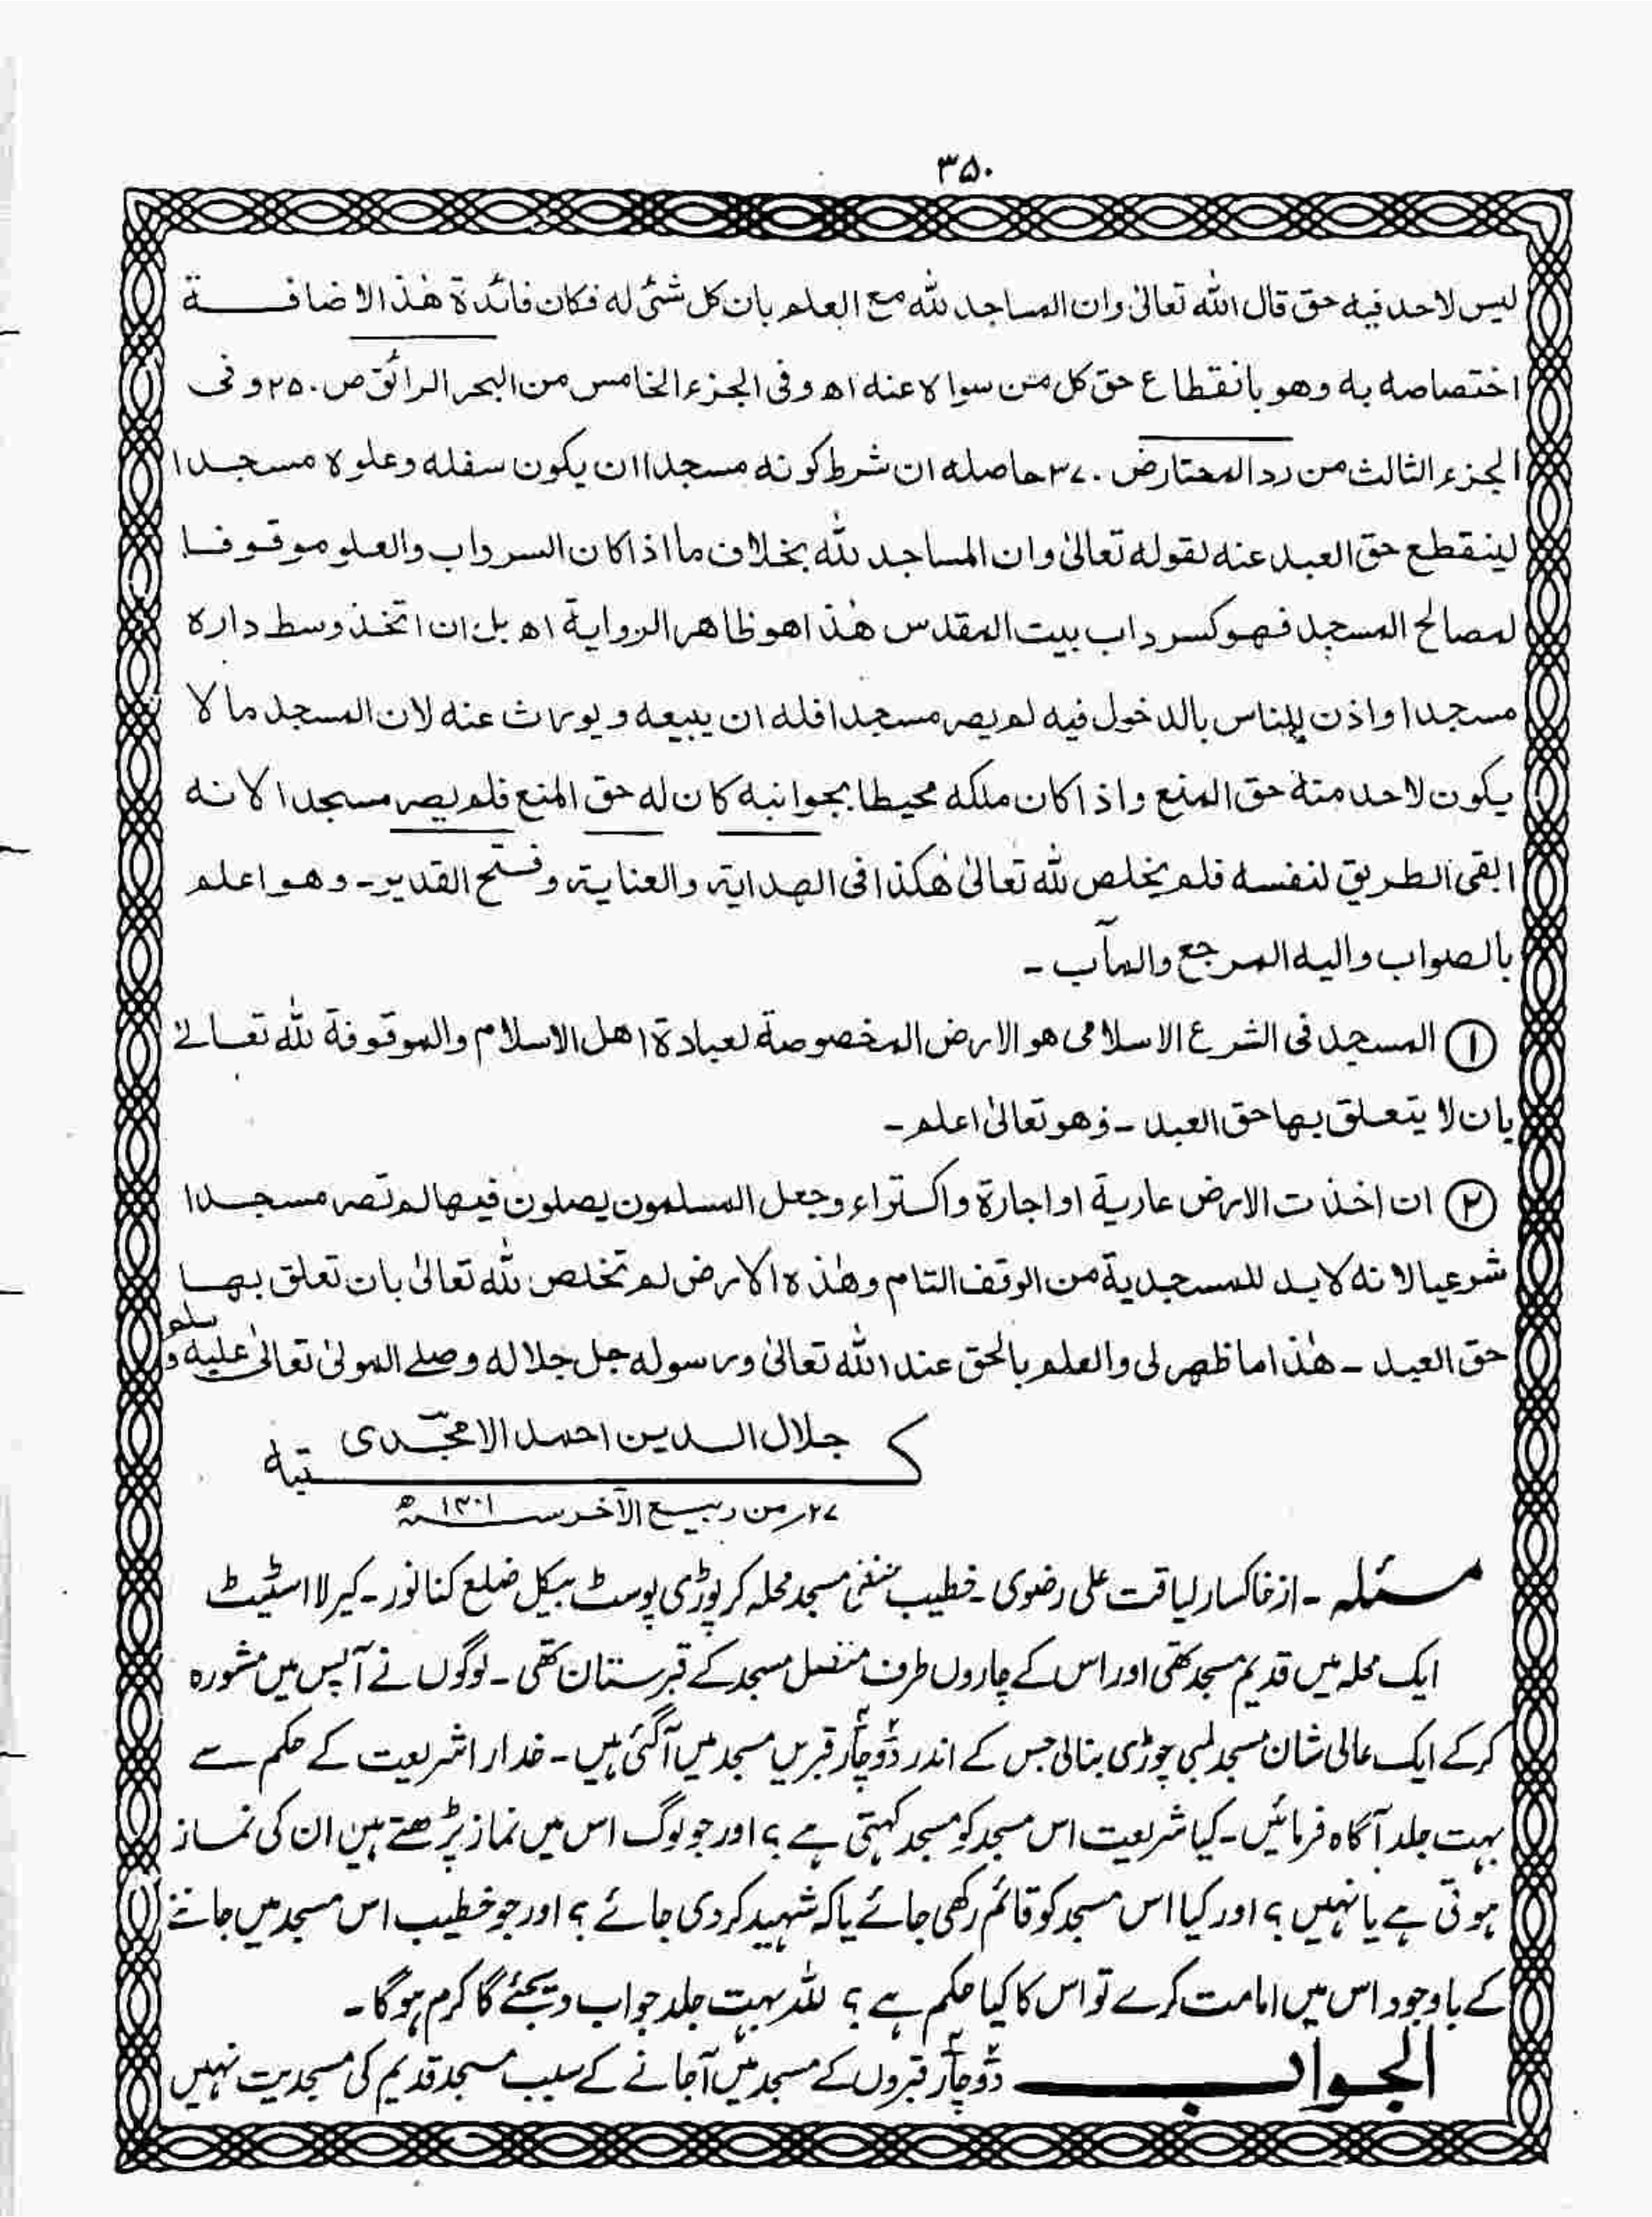 ۳۵۰
ليس لاحد فيه حق قال الله تعالىٰ وان المساجد لله مع العلم بان كل شئ له فكان فائدة هٰذا الاضافة
اختصاصه به وهو بانقطاع حق كل من سواه عنه اه وفى الجزء الخامس من البحر الرائق ص۲۵۰ وفى
الجزء الثالث من رد المحتار ص ۳۷۰ حاصله ان شرط كونه مسجدا ان يكون سفله وعلوه مسجدا
لينقطع حق العبد عنه لقوله تعالىٰ وان المساجد لله بخلاف ما اذا كان السرداب والعلو موقوفا
لمصالح المسجد فهو كسرداب بيت المقدس هٰذا هو ظاهر الرواية اه بل ان اتخذ وسط داره
مسجدا واذن للناس بالدخول فيه لم يصر مسجدا فله ان يبيعه و يورث عنه لان المسجد مالا
يكون لاحد منه حق المنع واذا كان ملكه محيطا بجوانبه كان له حق المنع فلم يصر مسجدا لانه
ابقى الطريق لنفسه فلم يخلص لله تعالىٰ هٰكذا فى الهداية والعناية وفتح القدير۔ وهو اعلم
بالصواب واليه المرجع والمآب ۔
① المسجد فى الشرع الاسلامى هو الارض المخصوصة لعبادة اهل الاسلام والموقوفة لله تعالىٰ
بان لا يتعلق بها حق العبد ۔ وهو تعالىٰ اعلم ۔
② ان اخذت الارض عارية او اجارة واكتراء وجعل المسلمون يصلون فيها لم تصر مسجدا
شرعيا لانه لابد للمسجدية من الوقف التام وهٰذه الارض لم تخلص لله تعالىٰ بان تعلق بها
حق العبد ۔ هٰذا ما ظهر لى والعلم بالحق عند الله تعالىٰ ورسوله جل جلاله وصلے المولىٰ تعالىٰ عليه وسلم
جلال الدين احمد الامجدى
كتبه
۲۷ من ربيع الآخر سنہ ۱۴۰۱ھ
مسئلہ ۔ از خاکسار لیاقت علی رضوی ۔ خطیب حنفی مسجد محلہ کرپوڑی پوسٹ بیکل ضلع کنانور ۔ کیرلا اسٹیٹ
ایک محلہ میں قدیم مسجد تھی اور اس کے چاروں طرف متصل مسجد کے قبرستان تھی ۔ لوگوں نے آپس میں مشورہ
کرکے ایک عالی شان مسجد لمبی چوڑی بنالی جس کے اندر دو چار قبریں مسجد میں آگئی ہیں ۔ خدارا شریعت کے حکم سے
بہت جلد آگاہ فرمائیں ۔ کیا شریعت اس مسجد کو مسجد کہتی ہے ؟ اور جو لوگ اس میں نماز پڑھتے ہیں ان کی نماز
ہوتی ہے یا نہیں ؟ اور کیا اس مسجد کو قائم رکھی جائے یا کہ شہید کر دی جائے ؟ اور جو خطیب اس مسجد میں جاننے
کے باوجود اس میں امامت کرے تو اس کا کیا حکم ہے ؟ للہ بہت جلد جواب دیجئے گا کرم ہوگا ۔
الجواب دو چار قبروں کے مسجد میں آجانے کے سبب مسجد قدیم کی مسجدیت نہیں